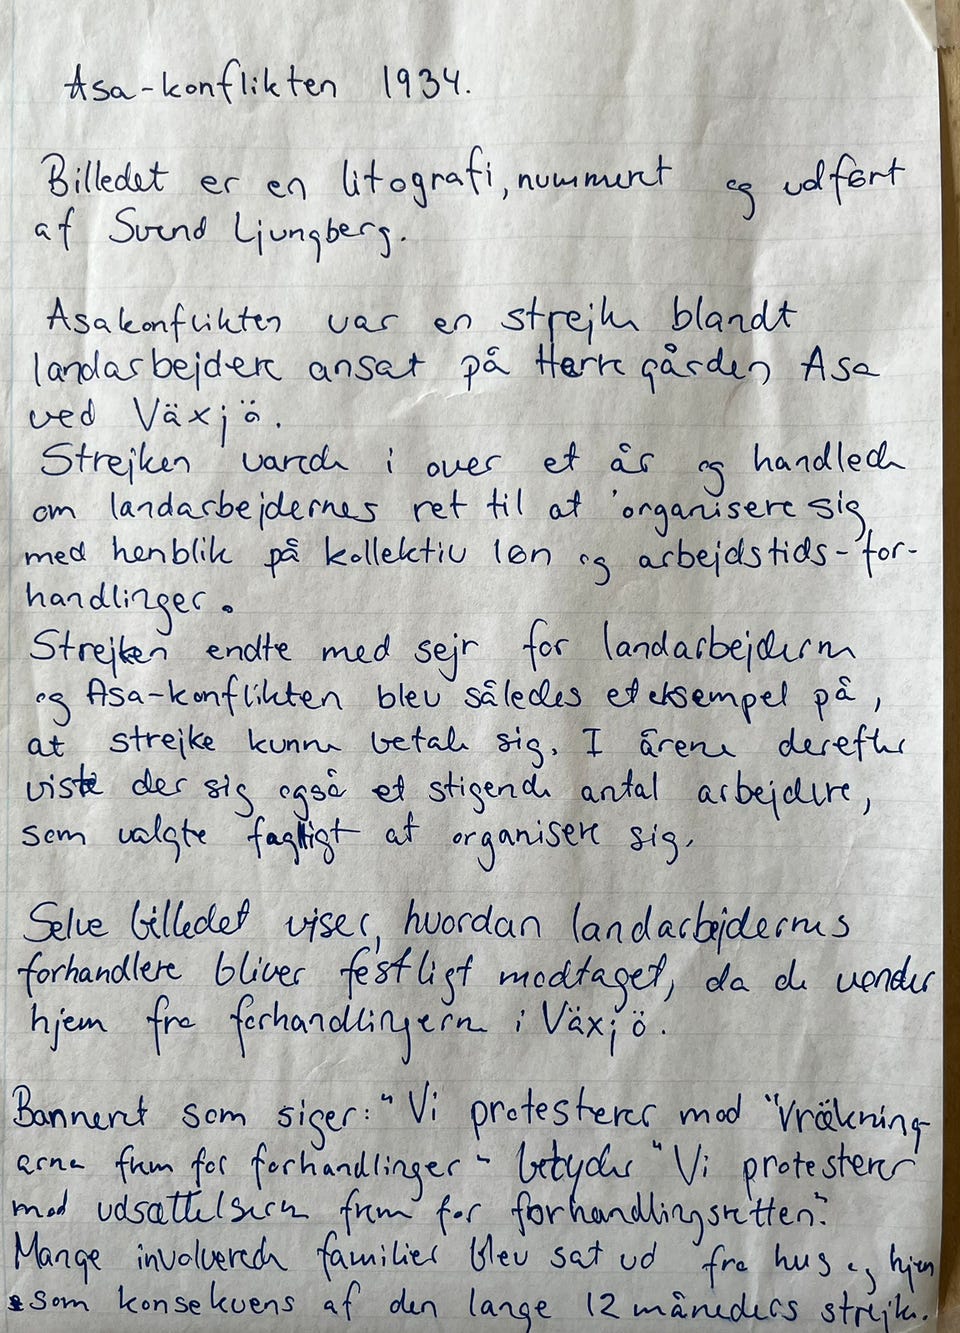 Asa-konflikten 1934.
Billedet er en litografi, nummeret og udført
af Svend Ljungberg.
Asakonflikten var en strejke blandt
landarbejdere ansat på Herregården Asa
ved Växjö.
Strejken varede i over et år og handlede
om landarbejdernes ret til at organisere sig
med henblik på kollektiv løn og arbejdstids-for-
handlinger.
Strejken endte med sejr for landarbejderne
og Asa-konflikten blev således et eksempel på,
at strejke kunne betale sig. I årene derefter
viste der sig også et stigende antal arbejdere,
som valgte fagligt at organisere sig.
Selve billedet viser, hvordan landarbejdernes
forhandlere bliver festligt modtaget, da de vender
hjem fra forhandlingerne i Växjö.
Banneret som siger: "Vi protesterer mod "Vräkning-
arna frem for forhandlinger" betyder "Vi protesterer
mod udsættelserne frem for forhandlingsretten."
Mange involverede familier blev sat ud fra hus og hjem
som konsekvens af den lange 12 måneders strejke.